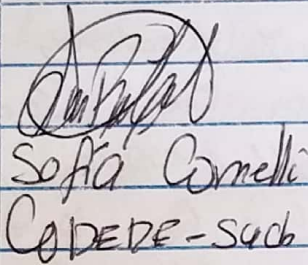 Sofía Comelli
CODEDE-Such